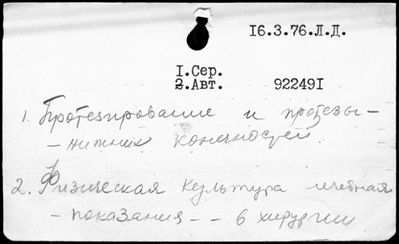 16.3.76.Л.Д.
I.Сер.
2.Авт. 922491
1. Протезирование и протезы -
- нижних конечностей.
2. Физическая культура лечебная
- показания - - в хирургии